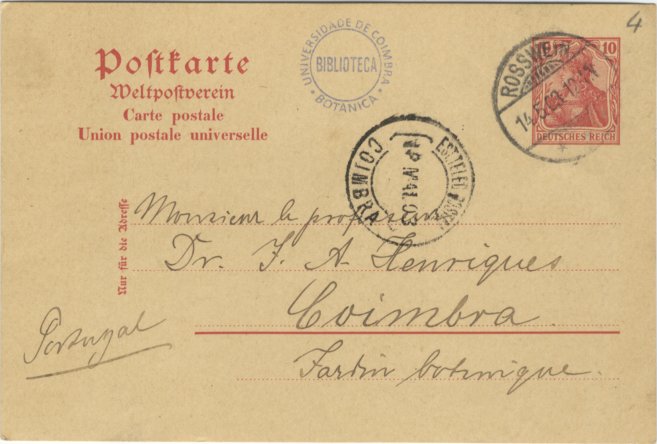 4
Postkarte
Weltpostverein
Carte postale
Union postale universelle
UNIVERSIDADE DE COIMBRA
BIBLIOTECA
BOTANICA
ROSSWEIN
14.5.03
10
DEUTSCHES REICH
COIMBRA
Nur für die Adresse
Monsieur le professeur
Dr. J. A. Henriques
Coimbra.
Portugal
Jardin botanique.